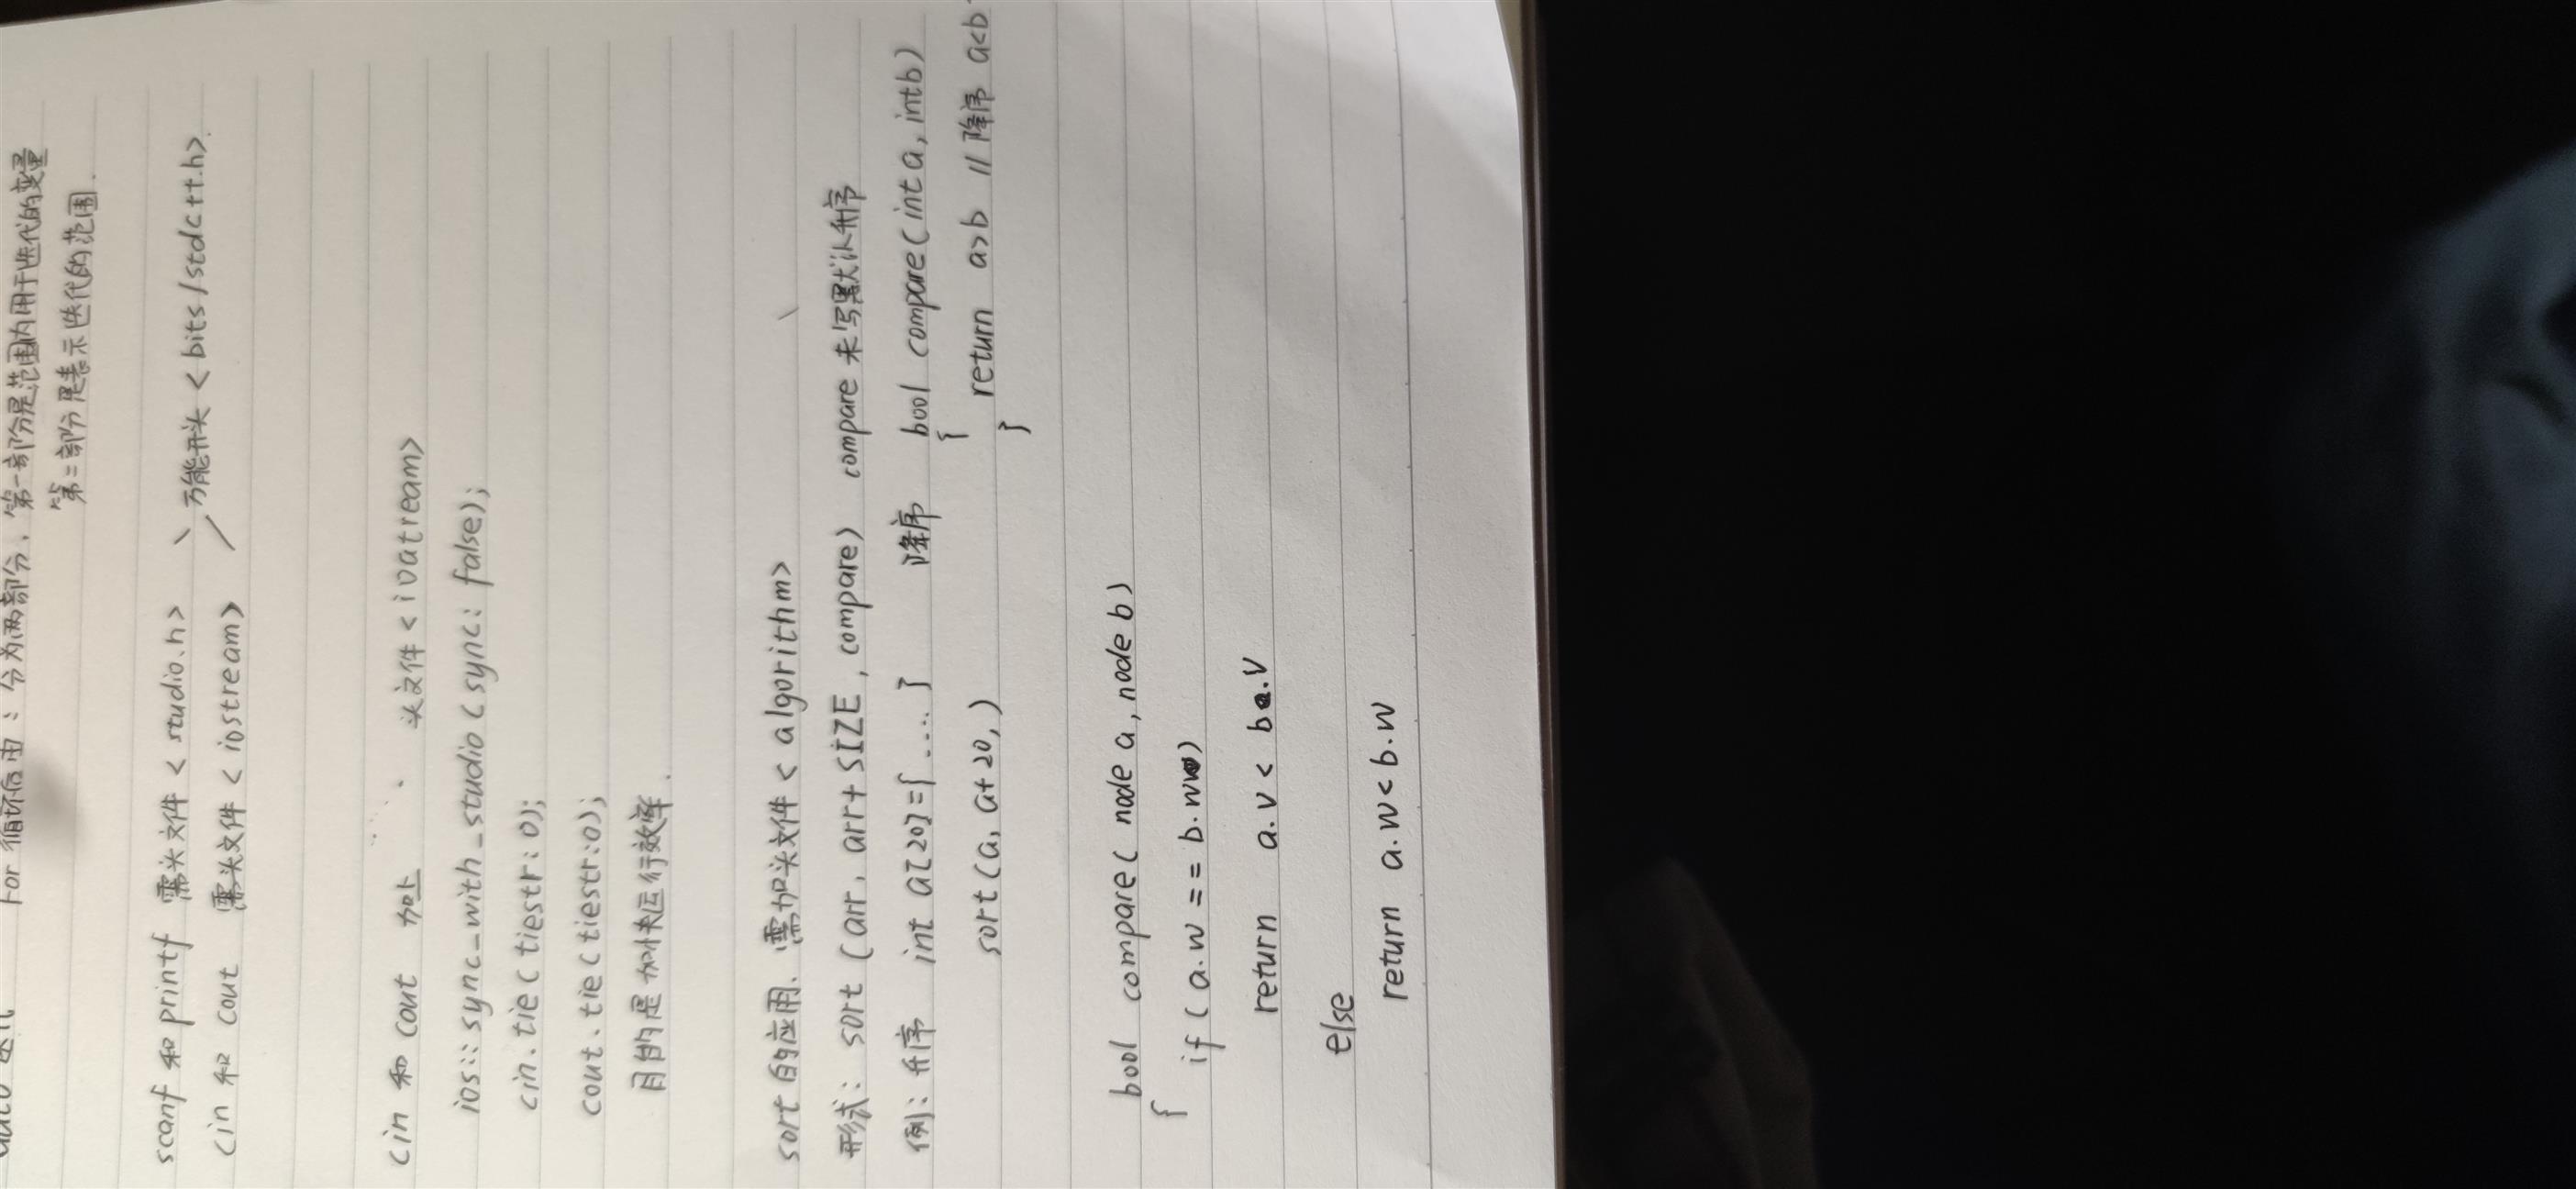 for 循环后由: 分为两部分, 第一部分是范围内用于迭代的变量
第二部分是表示迭代的范围.
scanf 和 printf 需头文件 < studio.h>
万能开头 < bits / stdc++.h>
cin 和 cout 需头文件 < iostream>
cin 和 cout 加上 头文件 < ioatream>
ios:: sync_with_studio ( sync: false);
cin.tie ( tiestr: 0);
cout.tie ( tiestr:0);
目的是加快运行效率.
sort 的应用. 需加头文件 < algorithm>
形式: sort (arr, arr+ SIZE, compare) compare 未写默认升序
例: 升序 int a[20]={....} 降序 bool compare ( int a, int b)
{
sort (a, a+20,) return a>b // 降序 a<b
}
bool compare ( node a, node b)
{
if ( a.w === b.w)
return a.v < b.v
else
return a.w < b.w